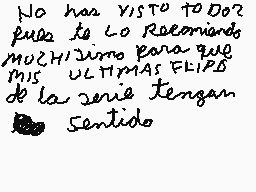 No has VISTO TODO?
pues te LO Recomiendo
MUCHISimo para que
MIS ULTIMAS FLIPB
de la serie tengan
sentido